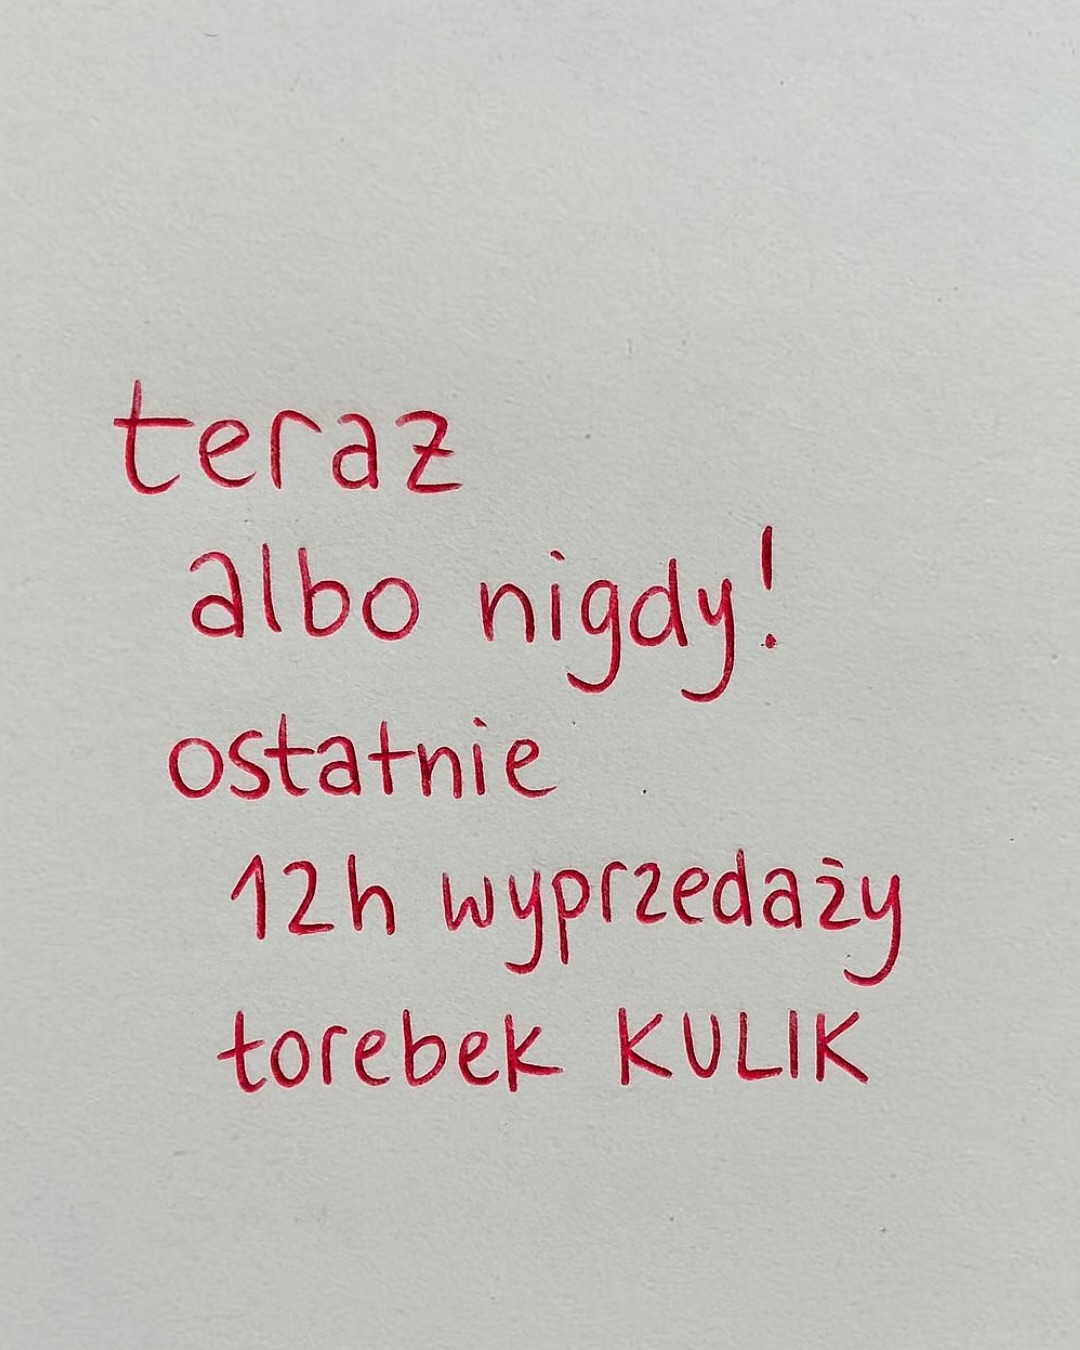 teraz
albo nigdy!
ostatnie
12h wyprzedaży
torebek KULIK